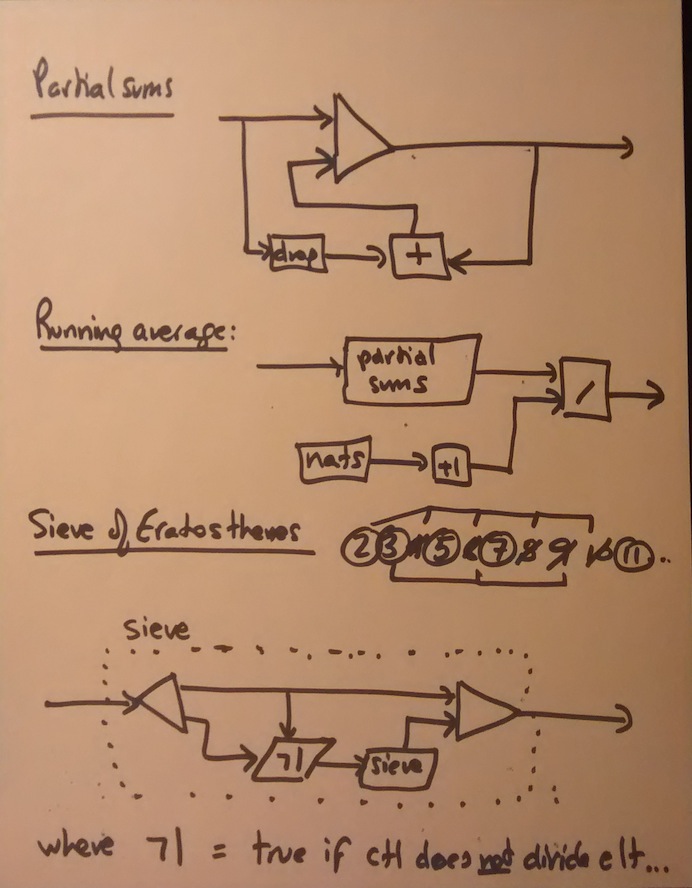 Partial sums
drop
+
Running average:
partial
sums
/
nats
+1
Sieve of Eratosthenes
2 3 4 5 6 7 8 9 10 11 ..
sieve
¬|
sieve
where ¬| = true if ctl does not divide elt...